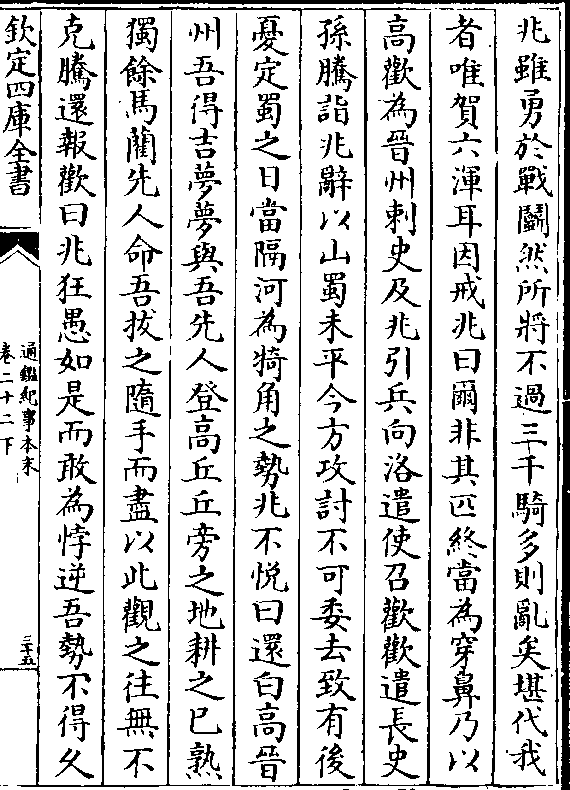 兆雖勇於戰鬭然所將不過三千騎多則亂矣堪代我
者唯賀六渾耳因戒兆曰爾非其匹終當為穿鼻乃以
高歡為晉州刺史及兆引兵向洛遣使召歡歡遣長史
孫騰詣兆辭以山蜀未平今方攻討不可委去致有後
憂定蜀之日當隔河為犄角之勢兆不悅曰還白高晉
州吾得吉夢夢與吾先人登高丘丘旁之地耕之已熟
獨餘馬藺先人命吾拔之隨手而盡以此觀之往無不
克騰還報歡曰兆狂愚如是而敢為悖逆吾勢不得久
欽定四庫全書
通鑑紀事本末
卷二十二下
二十五